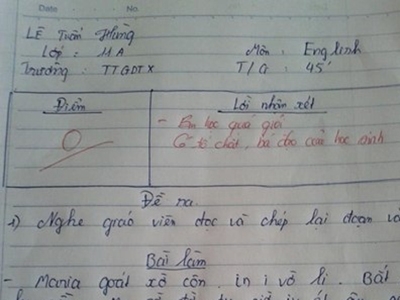 Date No.
LÊ Tuấn Hùng
Lớp : 11A Môn : English
Trường : TTGDTX T/G : 45'
Điểm Lời nhận xét
0 - Em học quá giỏi
Có tố chất, bá đạo của học sinh
Đề ra.
1) Nghe giáo viên đọc và chép lại đoạn
Bài làm
- Mania goát xờ côn, in i vô li. Bất